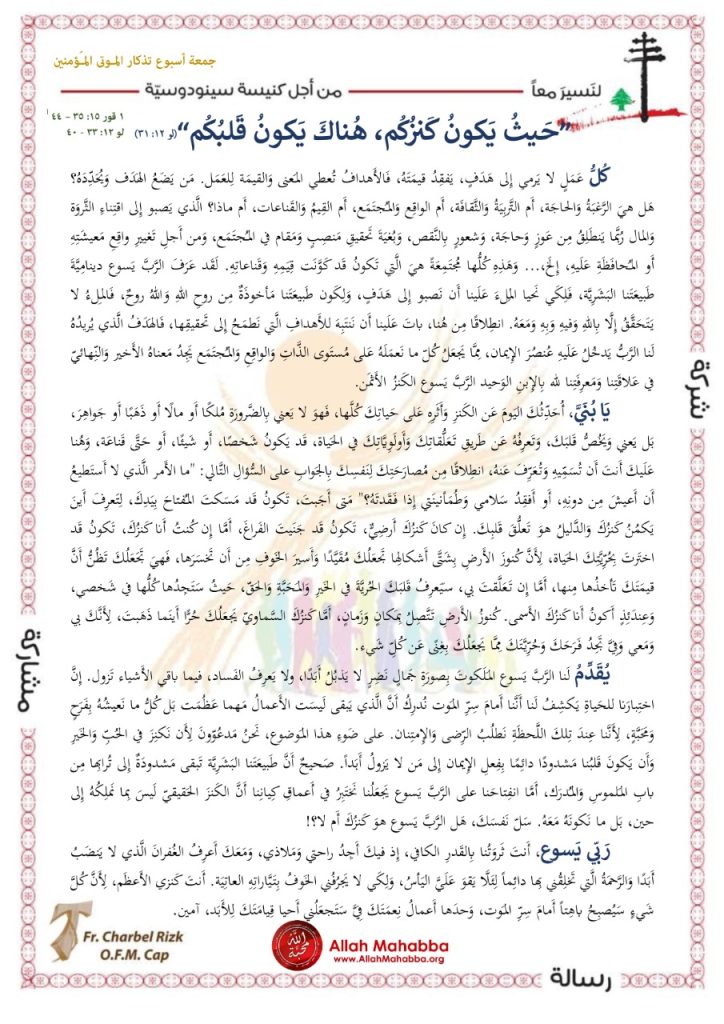 جمعة أسبوع تذكار الموتى المؤمنين
لنَسيرَ معاً
من أجل كنيسة سينودوسيّة
١ قور ١٥: ٣٥ – ٤٤
لو ١٢: ٣٣- ٤٠
”حَيثُ يَكونُ كَنزُكُم، هُناكَ يَكونُ قَلبُكُم“ (لو ١٢: ٣١)
كُلُّ عَمَلٍ لا يَرمي إلى هَدَفٍ، يَفقِدُ قيمَتَهُ، فَالأهدافُ تُعطي المَعنى والقيمَة لِلعَمل. مَن يَضَعُ الهَدَف ويُحَدِّدَهُ؟
هَل هيَ الرَّغبَةُ والحَاجة، أم التَّربِيَةُ والثَّقافَة، أم الواقِع والمُجتَمَع، أم القِيَمُ والقَناعات، أم ماذا؟ الَّذي يَصبو إلى اقتِناءِ الثَّروَة
والمال رُبَّما يَنطَلِقُ مِن عَوَزٍ وَحاجَة، وشعورٍ بالنَّقص، وبُغيَةَ تَحقيقِ مَنصِبٍ ومَقام في المُجتَمَع، وَمن أجلِ تَغييرِ واقِعِ مَعيشَتِهِ
أو المُحافَظَةِ عَلَيه، إلخ،... وَهَذِهِ كُلُّها مُجتَمِعَةً هيَ الَّتي تَكونُ قد كَوَّنَت قِيَمِهِ وَقناعاتِهِ. لَقَد عَرَفَ الرَّبّ يَسوع دينامِيَّةَ
طَبيعَتَنا البَشَرِيَّة، فَلِكَي نَحيا المِلءَ عَلَينا أن نَصبو إلى هَدَفٍ، وَلِكَون طَبيعَتَنا مَأخوذَةٌ مِن روحِ اللهِ وَاللهُ روحٌ، فَالمِلءُ لا
يَتَحَقَّقُ إلَّا بِاللهِ وَفيهِ وَبِهِ وَمَعَهُ. انطِلاقًا مِن هُنا، باتَ عَلَينا أن نَنتَبِهَ للأهدافِ الَّتي نَطمَحُ إلى تَحقيقِها، فَالهَدَفُ الَّذي يُريدُهُ
لَنا الرَّبُّ يَدخُلُ عَلَيهِ عُنصُرَ الإيمان، مِمَّا يَجعَلُ كُلّ ما نَعمَلَهُ على مُستَوى الذَّاتِ وَالواقِعِ وَالمُجتَمَع يَجِدُ مَعناهُ الأخير وَالنِّهائيّ
في عَلاقَتِنا وَمَعرِفَتِنا لله بالإبنِ الوَحيد الرَّبّ يَسوع الكَنزُ الأثمَن.
يَا بُنَيَّ، أُحَدِّثُكَ اليَومَ عَن الكَنزِ وَأثَرِهِ على حَياتِكَ كُلِّها، فَهوَ لا يَعني بِالضَّرورَةِ مُلكًا أو مالًا أو ذَهَبًا أو جَواهِرَ،
بَل يَعني وَيَخُصُّ قَلبَكَ، وَتَعرِفُهُ عَن طَريقِ تَعَلُّقاتِكَ وَأولَوِيَّاتِكَ في الحَياة، قَد يَكونُ شَخصًا، أو شَيئًا، أو حَتَّى قَناعَة، وَهُنا
عَلَيكَ أنتَ أن تُسَمِّيهِ وَتُعَرِّفَ عَنهُ، انطِلاقًا مِن مُصارَحَتِكَ لِنَفسِكَ بِالجَوابِ على السُّؤالِ التَّالي: "ما الأمر الَّذي لا أستَطيعُ
أن أعيشَ مِن دونِهِ، أو أفقِدُ سَلامي وَطُمَأنينَتي إذا فَقَدتَهُ؟" مَتى أجَبتَ، تَكونُ قَد مَسَكتَ المُفتاحَ بِيَدِكَ، لِتَعرِفَ أينَ
يَكمُنُ كَنزُكَ وَالدَّليلُ هوَ تَعَلُّقَ قَلبِكَ. إن كانَ كَنزُكَ أرضِيٌّ، تَكونُ قَد جَنَيتَ الفَراغَ، أمَّا إن كُنتُ أنا كَنزُكَ، تَكونُ قَد
اختَرتَ بِحُرِّيَّتِكَ الحَياة، لِأنَّ كُنوزَ الأرضِ بِشَتَّى أشكالِها تَجعَلُكَ مُقَيَّدًا وَأسيرَ الخَوفِ مِن أن تَخسَرَها، فَهيَ تَجعَلُكَ تَظُنُّ أنَّ
قيمَتَكَ تَأخُذُها مِنها، أمَّا إن تَعَلَّقتَ بي، سَيَعرِفُ قَلبَكَ الحُرِّيَّةَ في الخَيرِ وَالمَحَبَّةِ وَالحَقّ، حَيثُ سَتَجِدُها كُلُّها في شَخصي،
وَعِندَئِذٍ أكونُ أنا كَنزُكَ الأسمى. كُنوزُ الأرضِ تَتَّصِلُ بِمَكانٍ وَزَمانٍ، أمَّا كَنزُكَ السَّماويّ يَجعَلُكَ حُرًّا أينَما ذَهَبتَ، لِأنَّكَ بي
وَمَعي وَفيَّ تَجِدُ فَرَحَكَ وَحُرِّيَّتَكَ مِمَّا يَجعَلُكَ بِغِنًى عَن كُلِّ شَيء.
يُقَدِّمُ لَنا الرَّبّ يَسوع المَلَكوتَ بِصورَةِ جَمالٍ نَضِرٍ لا يَذبُلُ أبَدًا، ولا يَعرِفُ الفَساد، فيما باقي الأشياء تَزول. إنَّ
اختِبارَنا للحَياةِ يَكشِفُ لَنا أنَّنا أمامَ سِرِّ المَوت نُدرِكُ أنَّ الَّذي يَبقى لَيسَت الأعمالُ مَهما عَظُمَت بَل كُلُّ ما نَعيشُهُ بِفَرَحٍ
وَمَحَبَّةٍ، لِأنَّنا عِندَ تِلكَ اللَّحظَةِ نَطلُبُ الرِّضى وَالإمتِنان. على ضَوءِ هذا الموضوع، نَحنُ مَدعُوّونَ لِأن نَكنِزَ في الحُبِّ وَالخَيرِ
وَأن يَكونَ قَلبُنا مَشدودًا دائِمًا بِفِعلِ الإيمان إلى مَن لا يَزولُ أبَداً. صَحيحٌ أنَّ طَبيعَتَنا البَشَرِيَّة تَبقى مَشدودَةٌ إلى تُرابِها مِن
بابِ المَلموسِ وَالمُدرَك، أمَّا انفِتاحَنا على الرَّبّ يَسوع يَجعَلُنا نَختَبِرُ في أعماقِ كِيانِنا أنَّ الكَنزَ الحَقيقيّ لَيسَ بِما تَملِكُهُ إلى
حين، بَل ما نَكونَهُ مَعَهُ. سَلّ نَفسَكَ، هَل الرَّبّ يَسوع هوَ كَنزُكَ أم لا؟!
رَبّي يَسوع، أنتَ ثَروَتُنا بِالقَدرِ الكافي، إذ فيكَ أجِدُ راحَتي وَمَلاذي، وَمَعَكَ أعرِفُ الغُفرانَ الَّذي لا يَنضَبُ
أبَدًا وَالرَّحمَةُ الَّتي تَخلِقُني بِها دائِماً لِئَلَّا يَقوَ عَلَيَّ اليَأسُ، وَلِكَي لا يَجرُفُني الخَوفُ بِتَيَّاراتِهِ العاتِيَة. أنتَ كَنزي الأعظَم، لِأنَّ كُلَّ
شَيءٍ سَيُصبِحُ باهِتاً أمامَ سِرِّ المَوت، وَحدَها أعمالُ نِعمَتَكَ فيَّ سَتَجعَلُني أحيا قِيامَتَكَ لِلأبَد، آمين.
شركة
مشاركة
Fr. Charbel Rizk
O.F.M. Cap
الله محبة
Allah Mahabba
www.AllahMahabba.org
رسالة